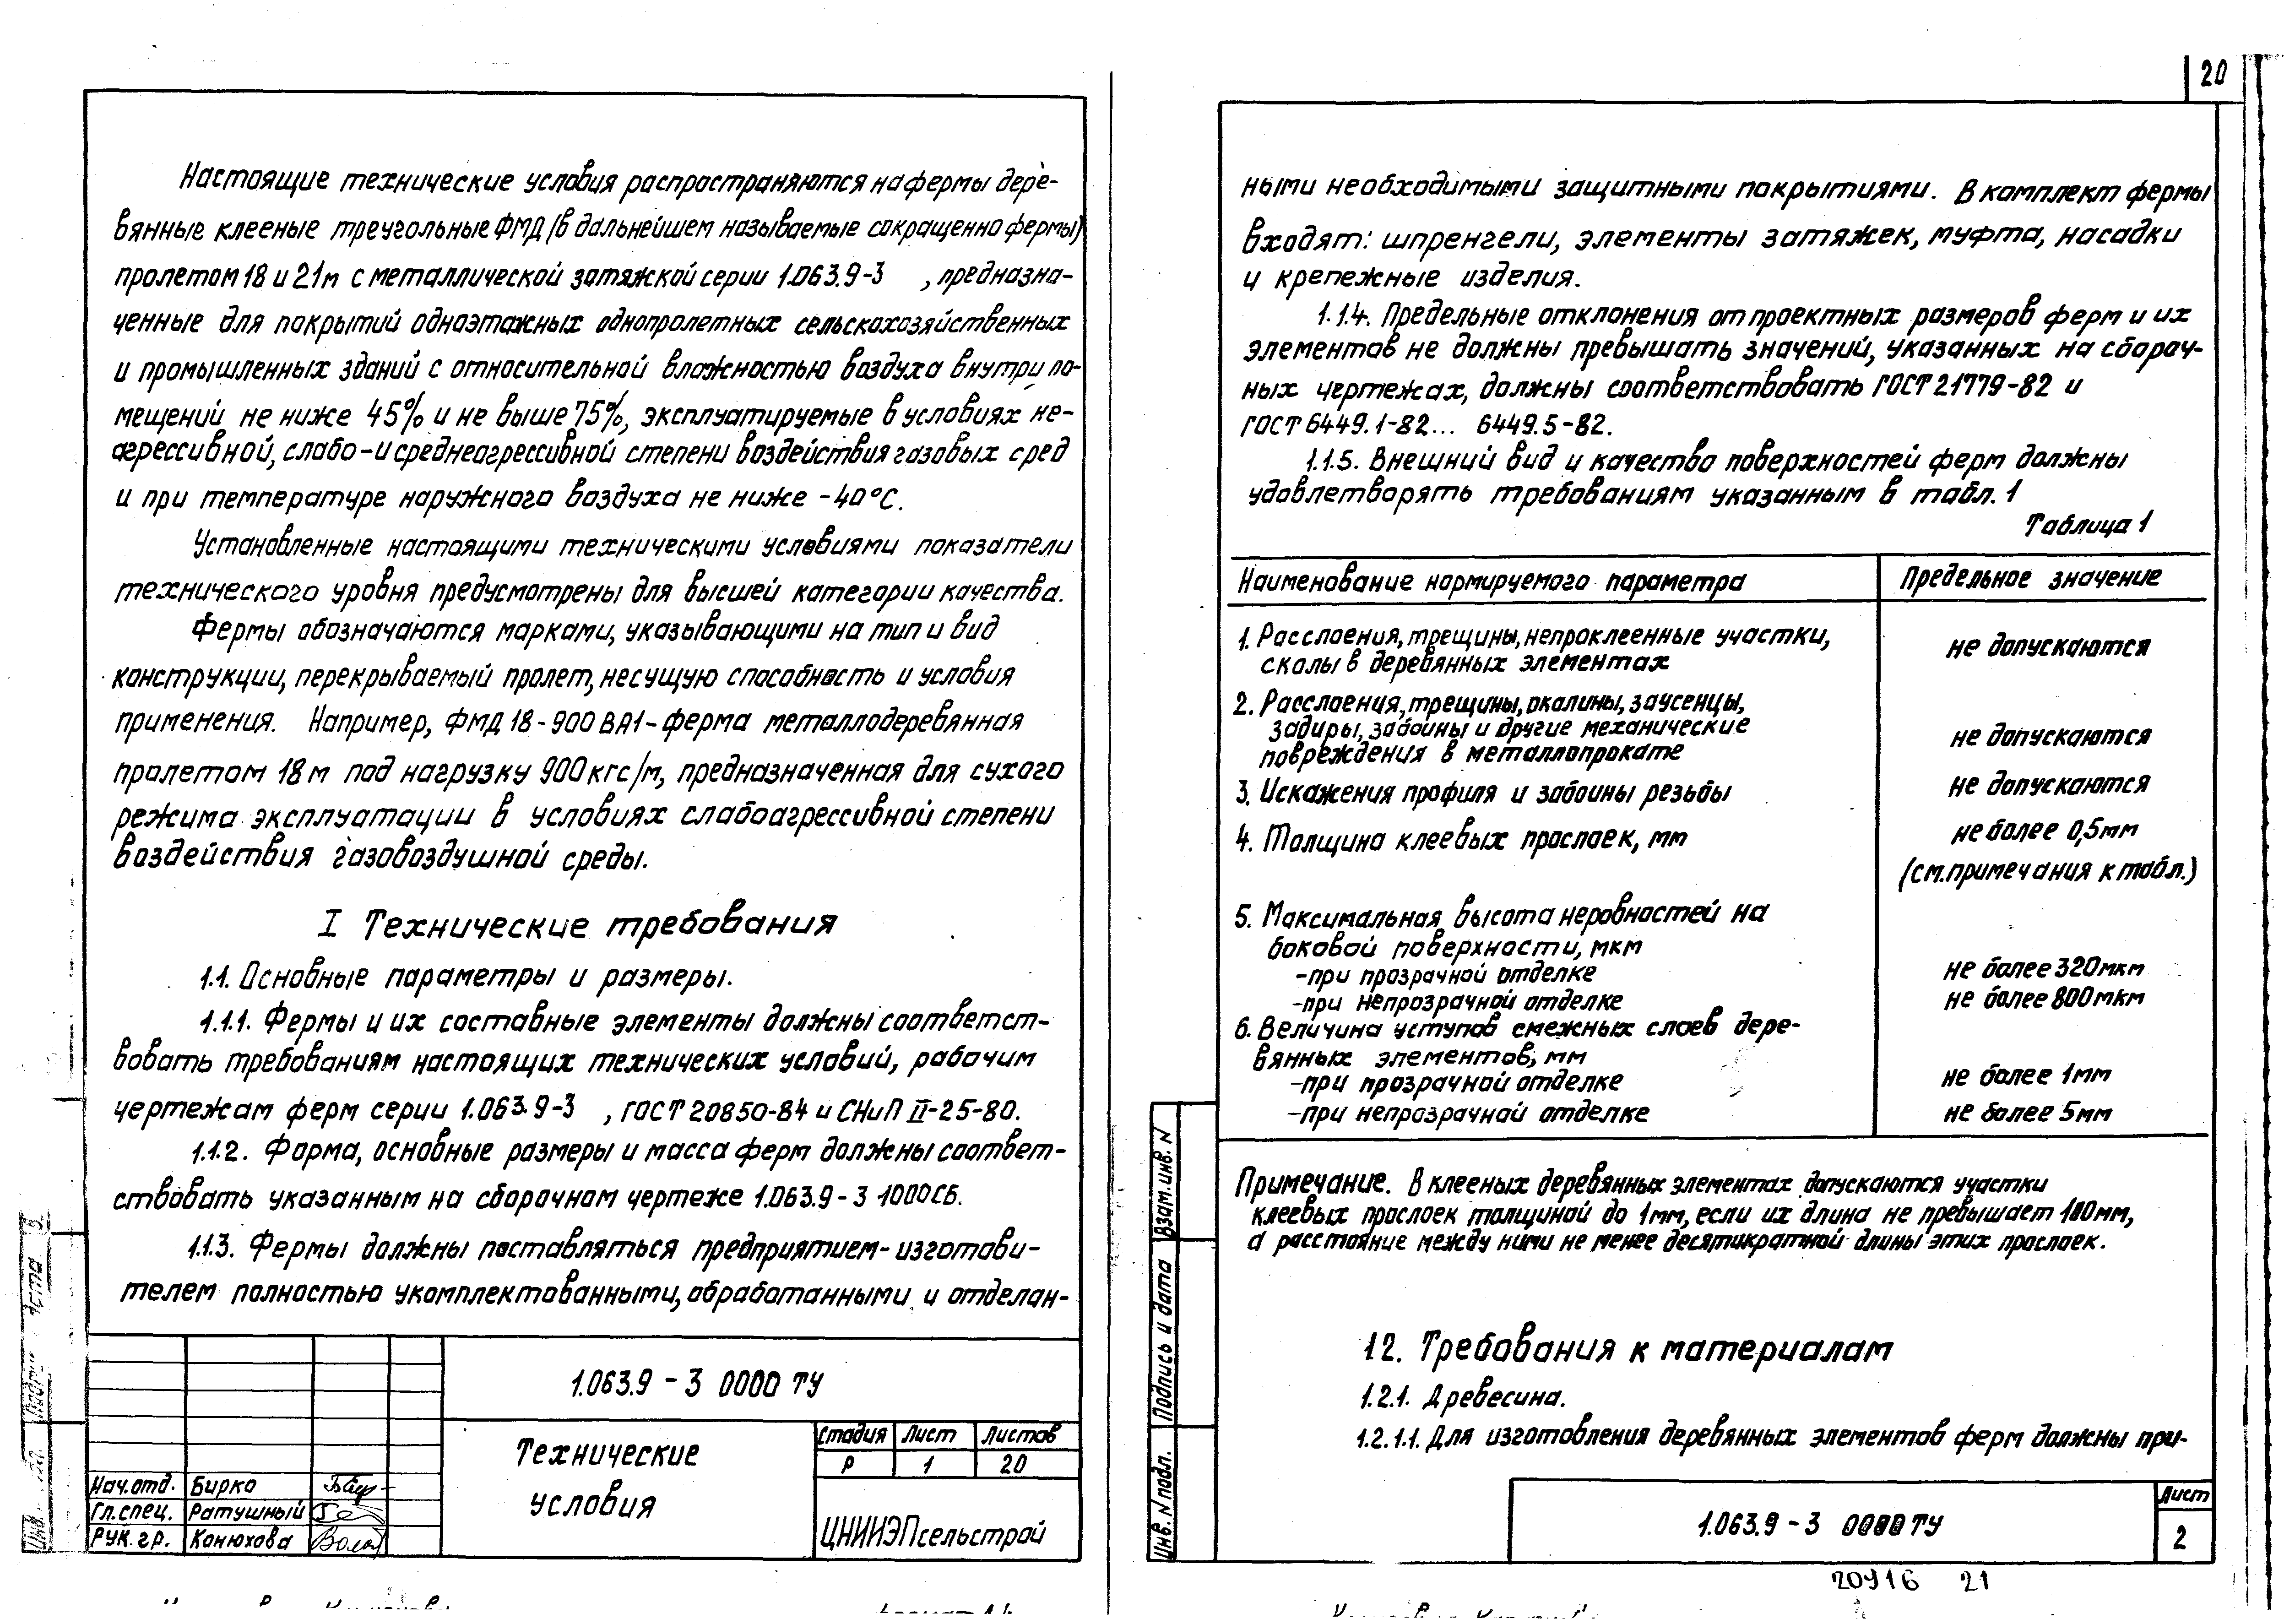 Настоящие технические условия распространяются на фермы дере-
вянные клееные треугольные ФМД (в дальнейшем называемые сокращенно фермы)
пролетом 18 и 21м с металлической затяжкой серии 1.063.9-3 , предназна-
ченные для покрытий одноэтажных однопролетных сельскохозяйственных
и промышленных зданий с относительной влажностью воздуха внутри по-
мещений не ниже 45% и не выше 75%, эксплуатируемые в условиях не-
агрессивной, слабо-и среднеагрессивной степени воздействия газовых сред
и при температуре наружного воздуха не ниже -40°С.
Установленные настоящими техническими условиями показатели
технического уровня предусмотрены для высшей категории качества.
Фермы обозначаются марками, указывающими на тип и вид
конструкции, перекрываемый пролет, несущую способность и условия
применения. Например, ФМД 18-900 ВА1-ферма металлодеревянная
пролетом 18м под нагрузку 900кгс/м, предназначенная для сухого
режима эксплуатации в условиях слабоагрессивной степени
воздействия газовоздушной среды.
I Технические требования
1.1. Основные параметры и размеры.
1.1.1. Фермы и их составные элементы должны соответст-
вовать требованиям настоящих технических условий, рабочим
чертежам ферм серии 1.063.9-3 , ГОСТ 20850-84 и СНиП II-25-80.
1.1.2. Форма, основные размеры и масса ферм должны соответ-
ствовать указанным на сборочном чертеже 1.063.9-3 1000СБ.
1.1.3. Фермы должны поставляться предприятием-изготови-
телем полностью укомплектованными, обработанными и отделан-
1.063.9-3 0000 ТУ
Технические
условия
Стадия Лист Листов
Р 1 20
ЦНИИЭПсельстрой
Нач.отд. Бирко
Гл.спец. Ратушный
Рук.гр. Конюхова
20
ными необходимыми защитными покрытиями. В комплект фермы
входят: шпренгели, элементы затяжек, муфта, насадки
и крепежные изделия.
1.1.4. Предельные отклонения от проектных размеров ферм и их
элементов не должны превышать значений, указанных на сбороч-
ных чертежах, должны соответствовать ГОСТ 21779-82 и
ГОСТ 6449.1-82... 6449.5-82.
1.1.5. Внешний вид и качество поверхностей ферм должны
удовлетворять требованиям указанным в табл. 1
Таблица 1
Наименование нормируемого параметра Предельное значение
1. Расслоения, трещины, непроклеенные участки,
сколы в деревянных элементах не допускаются
2. Расслоения, трещины, окалины, заусенцы,
задиры, забоины и другие механические
повреждения в металлопрокате не допускаются
3. Искажения профиля и забоины резьбы не допускаются
4. Толщина клеевых прослоек, мм не более 0,5мм
(см.примечания к табл.)
5. Максимальная высота неровностей на
боковой поверхности, мкм
-при прозрачной отделке не более 320мкм
-при непрозрачной отделке не более 800мкм
6. Величина уступов смежных слоев дере-
вянных элементов, мм
-при прозрачной отделке не более 1мм
-при непрозрачной отделке не более 5мм
Примечание. В клееных деревянных элементах допускаются участки
клеевых прослоек толщиной до 1мм, если их длина не превышает 100мм,
а расстояние между ними не менее десятикратной длины этих прослоек.
1.2. Требования к материалам
1.2.1. Древесина.
1.2.1.1. Для изготовления деревянных элементов ферм должны при-
Взам.инв.N
Подпись и дата
Инв.N подл.
1.063.9-3 0000 ТУ
Лист
2
20416 21